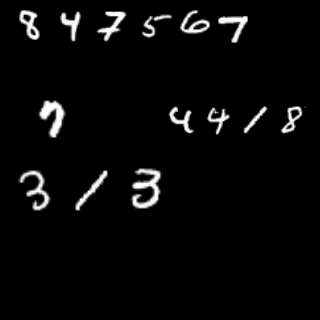 847567
7 44/8
3/3